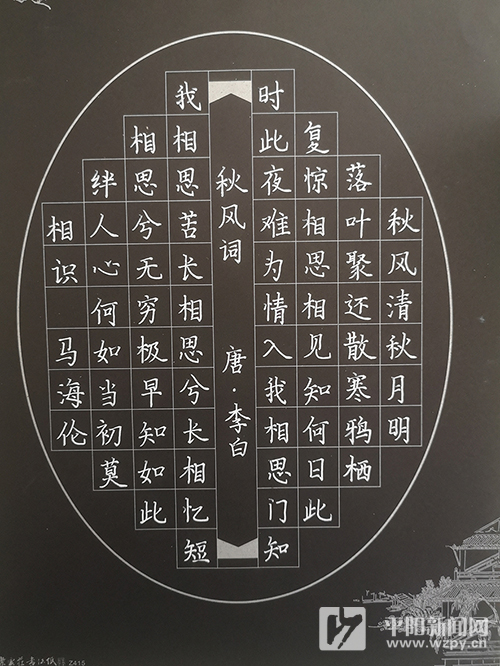 秋风清秋月明
落叶聚还散寒鸦栖
复惊相思相见知何日此
时此夜难为情入我相思门知
秋风词 唐·李白
我相思苦长相思兮长相忆短
相思兮无穷极早知如此
绊人心何如当初莫
相识 马海伦
平阳新闻网
www.wzpy.cn